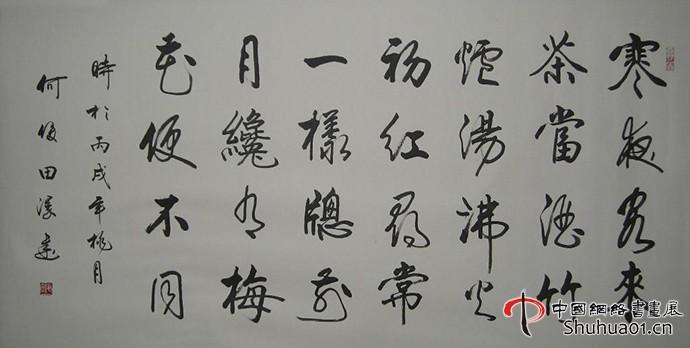 寒夜客來
茶當酒竹
爐湯沸火
初紅尋常
一樣牕前
月纔有梅
花便不同
時於丙戌年桃月
何田
中國網絡書畫展
Shuhua01.cn